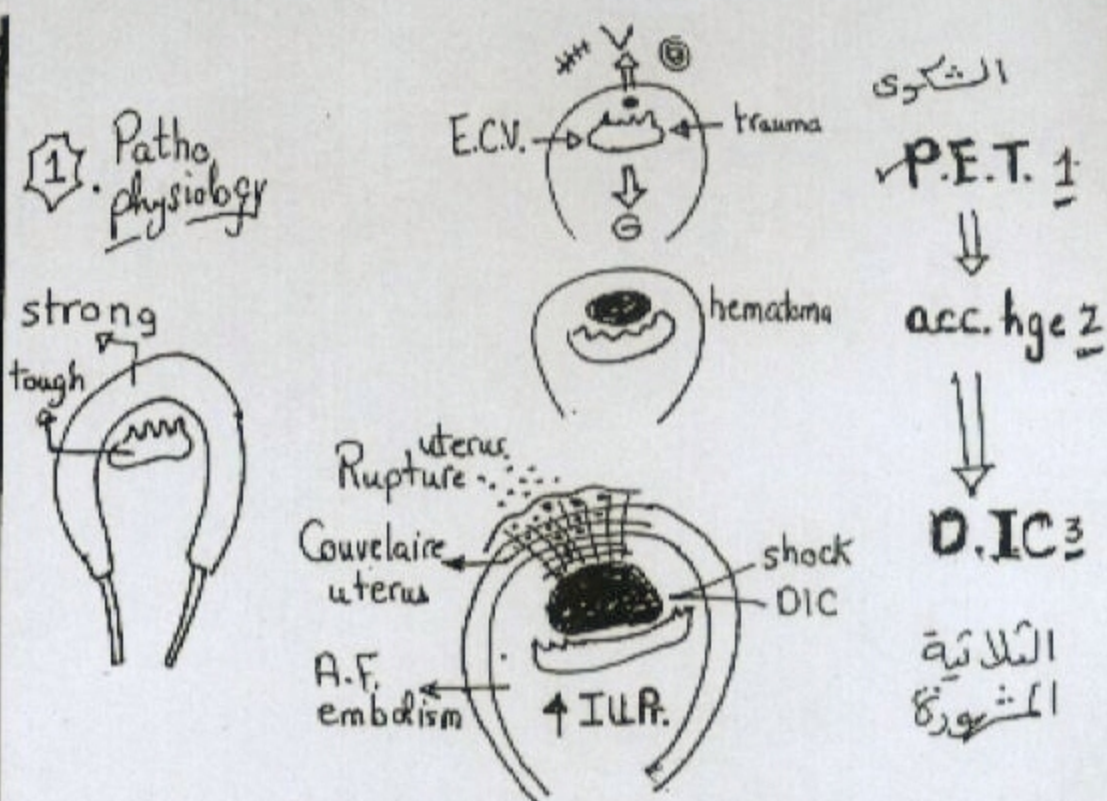 1. Patho
physiology
strong
tough
V
E.C.V.
trauma
G
hematoma
uterus
Rupture
Couvelaire
uterus
shock
DIC
A.F.
embolism
↑ I.U.Pr.
الشكوى
P.E.T. 1
acc. hge 2
D.IC 3
الثلاثية
المشهورة